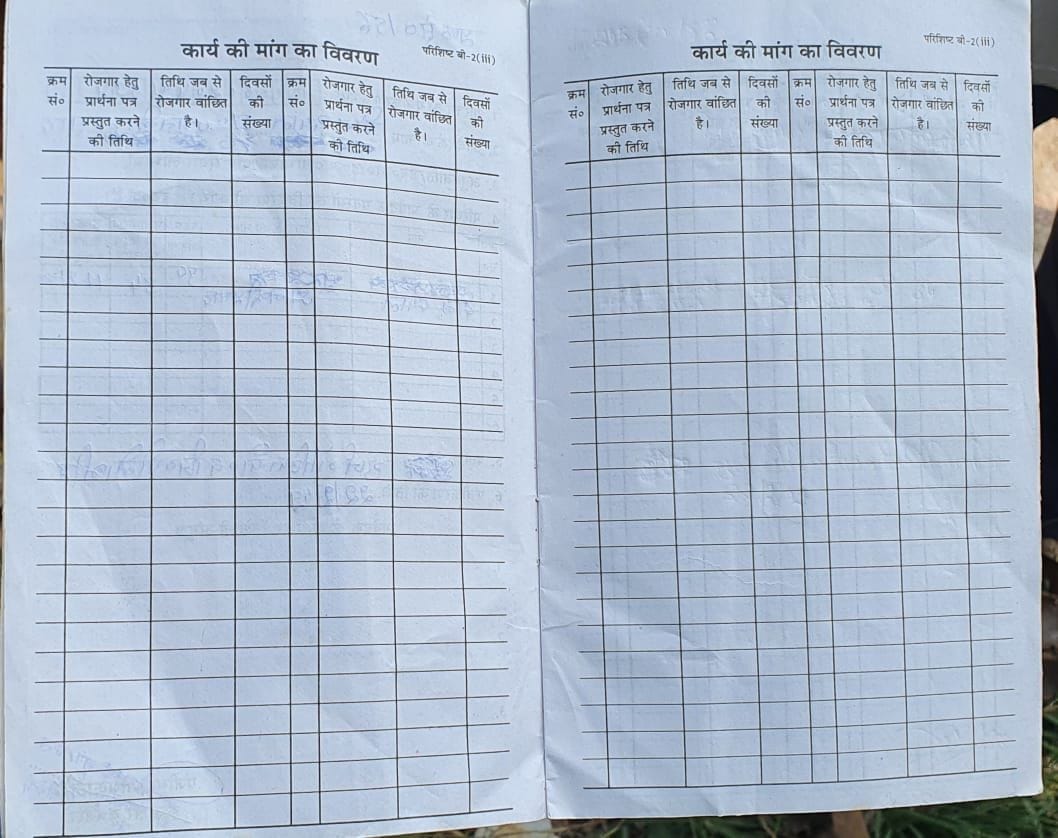 कार्य की मांग का विवरण
परिशिष्ट बी-2(iii)
क्रम सं०
रोजगार हेतु प्रार्थना पत्र प्रस्तुत करने की तिथि
तिथि जब से रोजगार वांछित है।
दिवसों की संख्या
क्रम सं०
रोजगार हेतु प्रार्थना पत्र प्रस्तुत करने की तिथि
तिथि जब से रोजगार वांछित है।
दिवसों की संख्या
कार्य की मांग का विवरण
परिशिष्ट बी-2(iii)
क्रम सं०
रोजगार हेतु प्रार्थना पत्र प्रस्तुत करने की तिथि
तिथि जब से रोजगार वांछित है।
दिवसों की संख्या
क्रम सं०
रोजगार हेतु प्रार्थना पत्र प्रस्तुत करने की तिथि
तिथि जब से रोजगार वांछित है।
दिवसों की संख्या